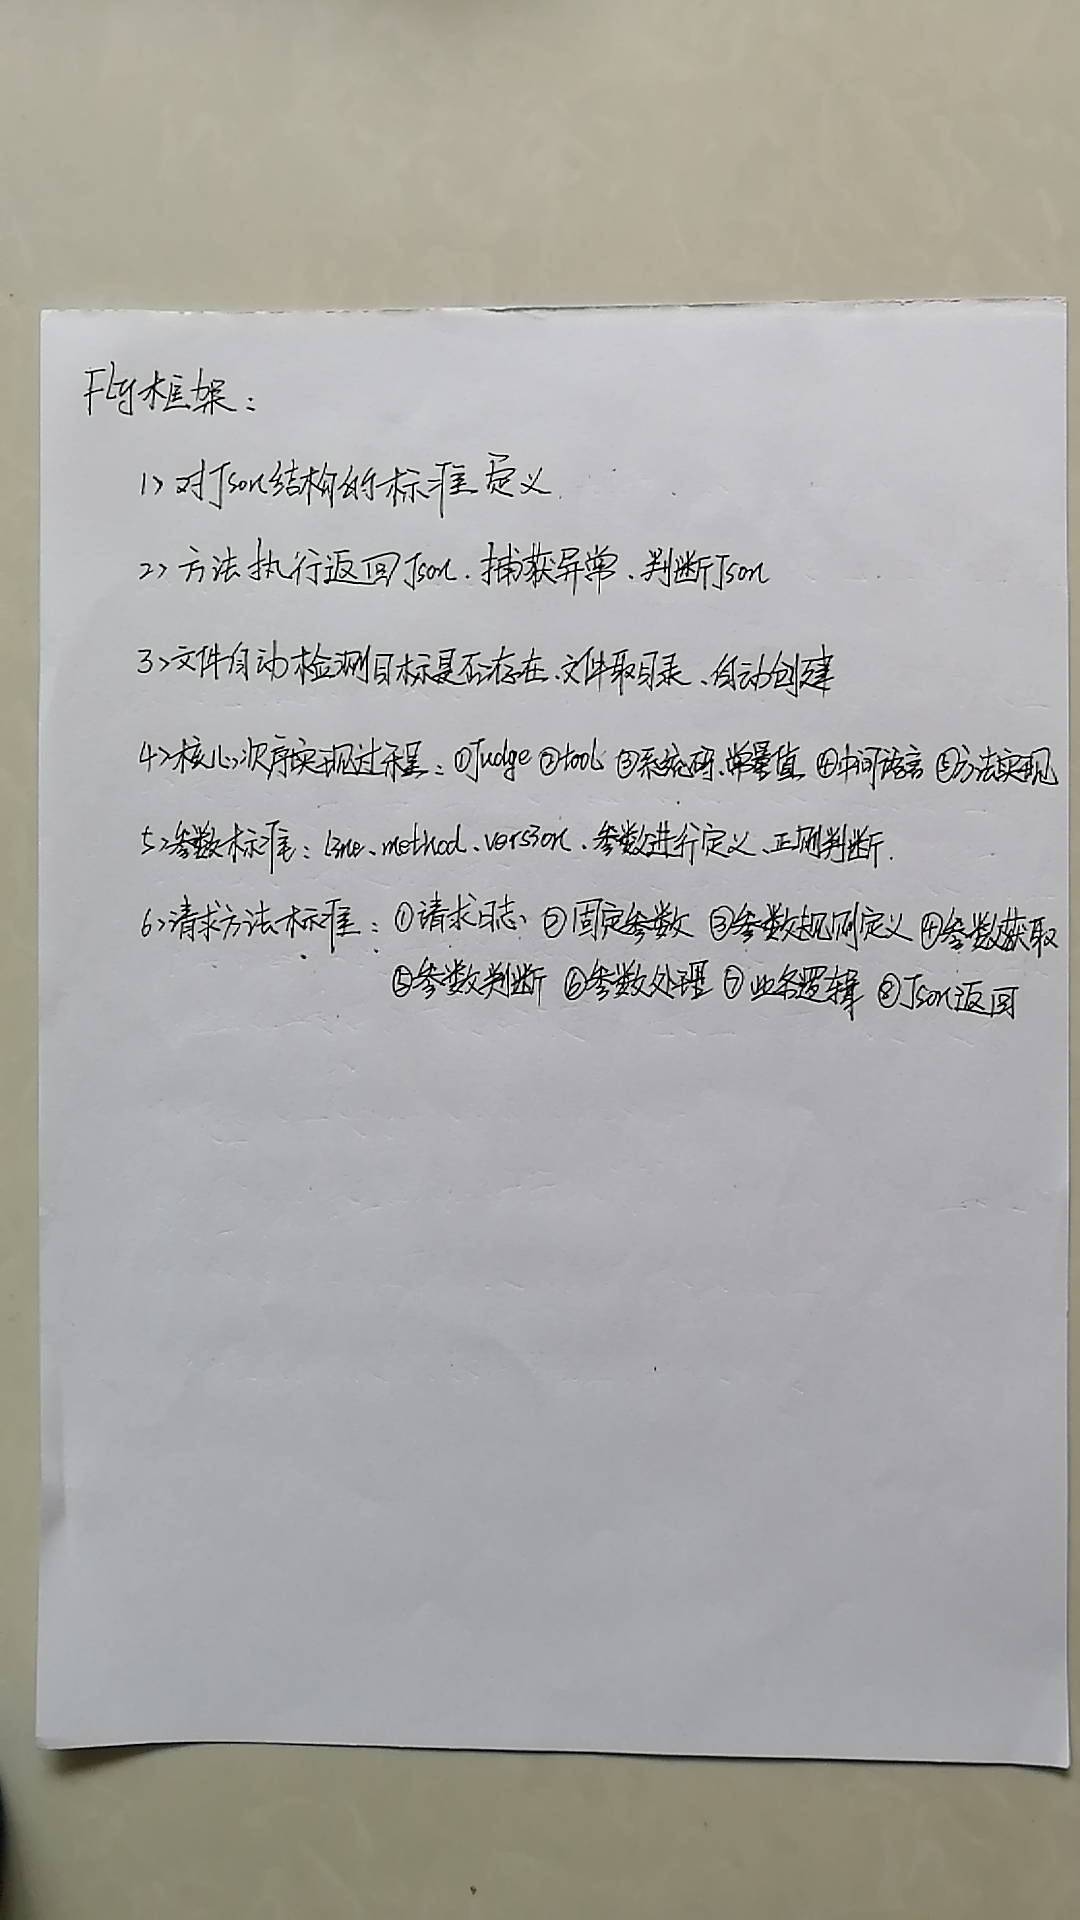 Fly框架：
1> 对Json结构的标准定义.
2> 方法执行返回Json、捕获异常、判断Json
3> 文件自动检测目标是否存在、文件取目录、自动创建
4> 核心次序实现过程：①Judge ②tool ③系统码、常量值 ④中间语言 ⑤方法实现
5> 参数标准：line、method、version、参数进行定义、正则判断.
6> 请求方法标准：①请求日志 ②固定参数 ③参数规则定义 ④参数获取
⑤参数判断 ⑥参数处理 ⑦业务逻辑 ⑧Json返回